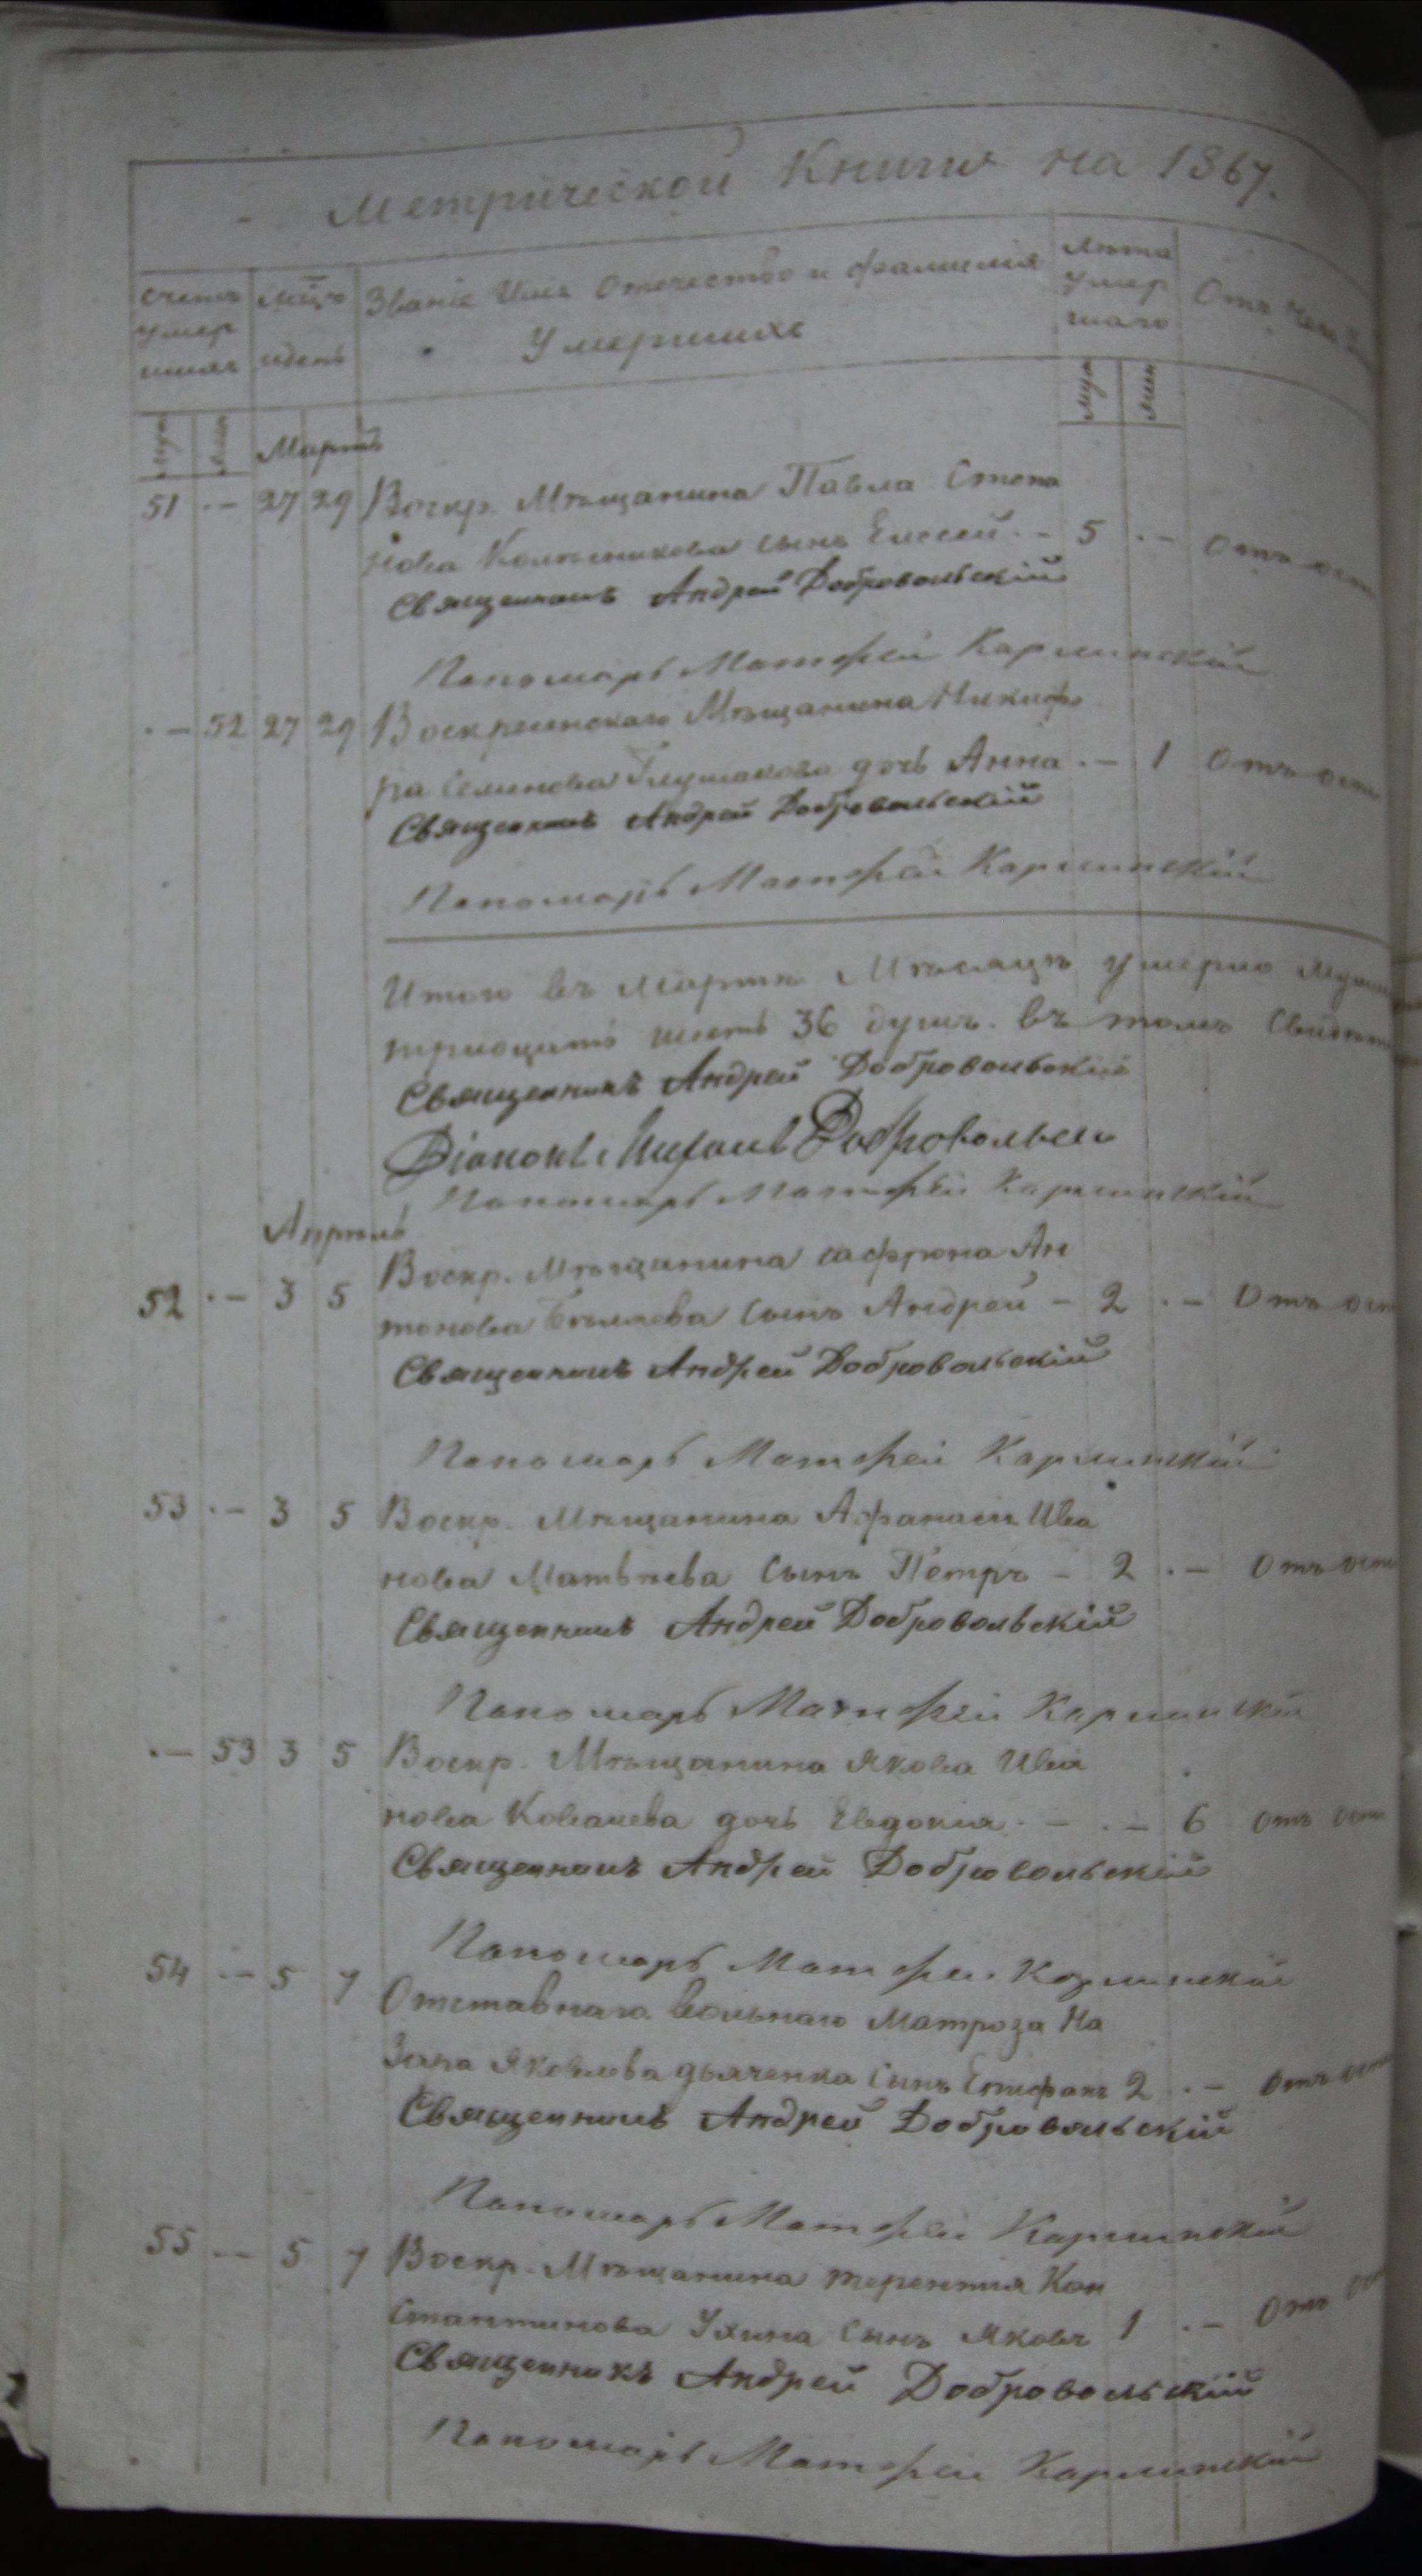 Метрической Книги на 1867.
счетъ умер шихъ
мцъ и день
Званіе Имя Отечество и фамилія Умершихъ
лѣта умер шаго
Отъ чего
муж жен
муж жен
Мартъ
51 .— 27 29 Воскр. Мѣщанина Павла Степа
нова Колесникова сынъ Елисей .— 5 .— Отъ
Священникъ Андрей Добровольскій
Пономарь Матфей Карминскій
.— 52 27 29 Воскресенскаго Мѣщанина Никифо
ра Семинова дочь Анна .— 1 Отъ
Священникъ Андрей Добровольскій
Пономарь Матфей Карминскій
Итого въ Мартѣ Мѣсяцѣ умерло
тридцать шесть 36 душъ. въ томъ
Священникъ Андрей Добровольскій
Діаконъ Добровольск
Пономарь Матфей Карминскій
Апрель
52 .— 3 5 Воскр. мѣщанина сафрона Ан
тонова Беляева сынъ Андрей — 2 .— Отъ
Священникъ Андрей Добровольскій
Пономарь Матфей Карминскій
53 .— 3 5 Воскр. Мѣщанина Афанасія Ива
нова Матвѣева Сынъ Петръ — 2 .— Отъ
Священникъ Андрей Добровольскій
Пономарь Матфей Карминскій
.— 53 3 5 Воскр. Мѣщанина Якова Ива
нова Ковалева дочь Евдокия .— .— 6 Отъ
Священникъ Андрей Добровольскій
Пономарь Матфей Карминскій
54 .— 5 7 Отставнаго вольнаго Матроза На
зара Яковлева дьяченка сынъ Епифанъ 2 .— Отъ
Священникъ Андрей Добровольскій
Пономарь Матфей Карминскій
55 .— 5 7 Воскр. Мѣщанина терентия Кон
стантинова Ухина Сынъ Яковъ 1 .— Отъ
Священникъ Андрей Добровольскій
Пономарь Матфей Карминскій